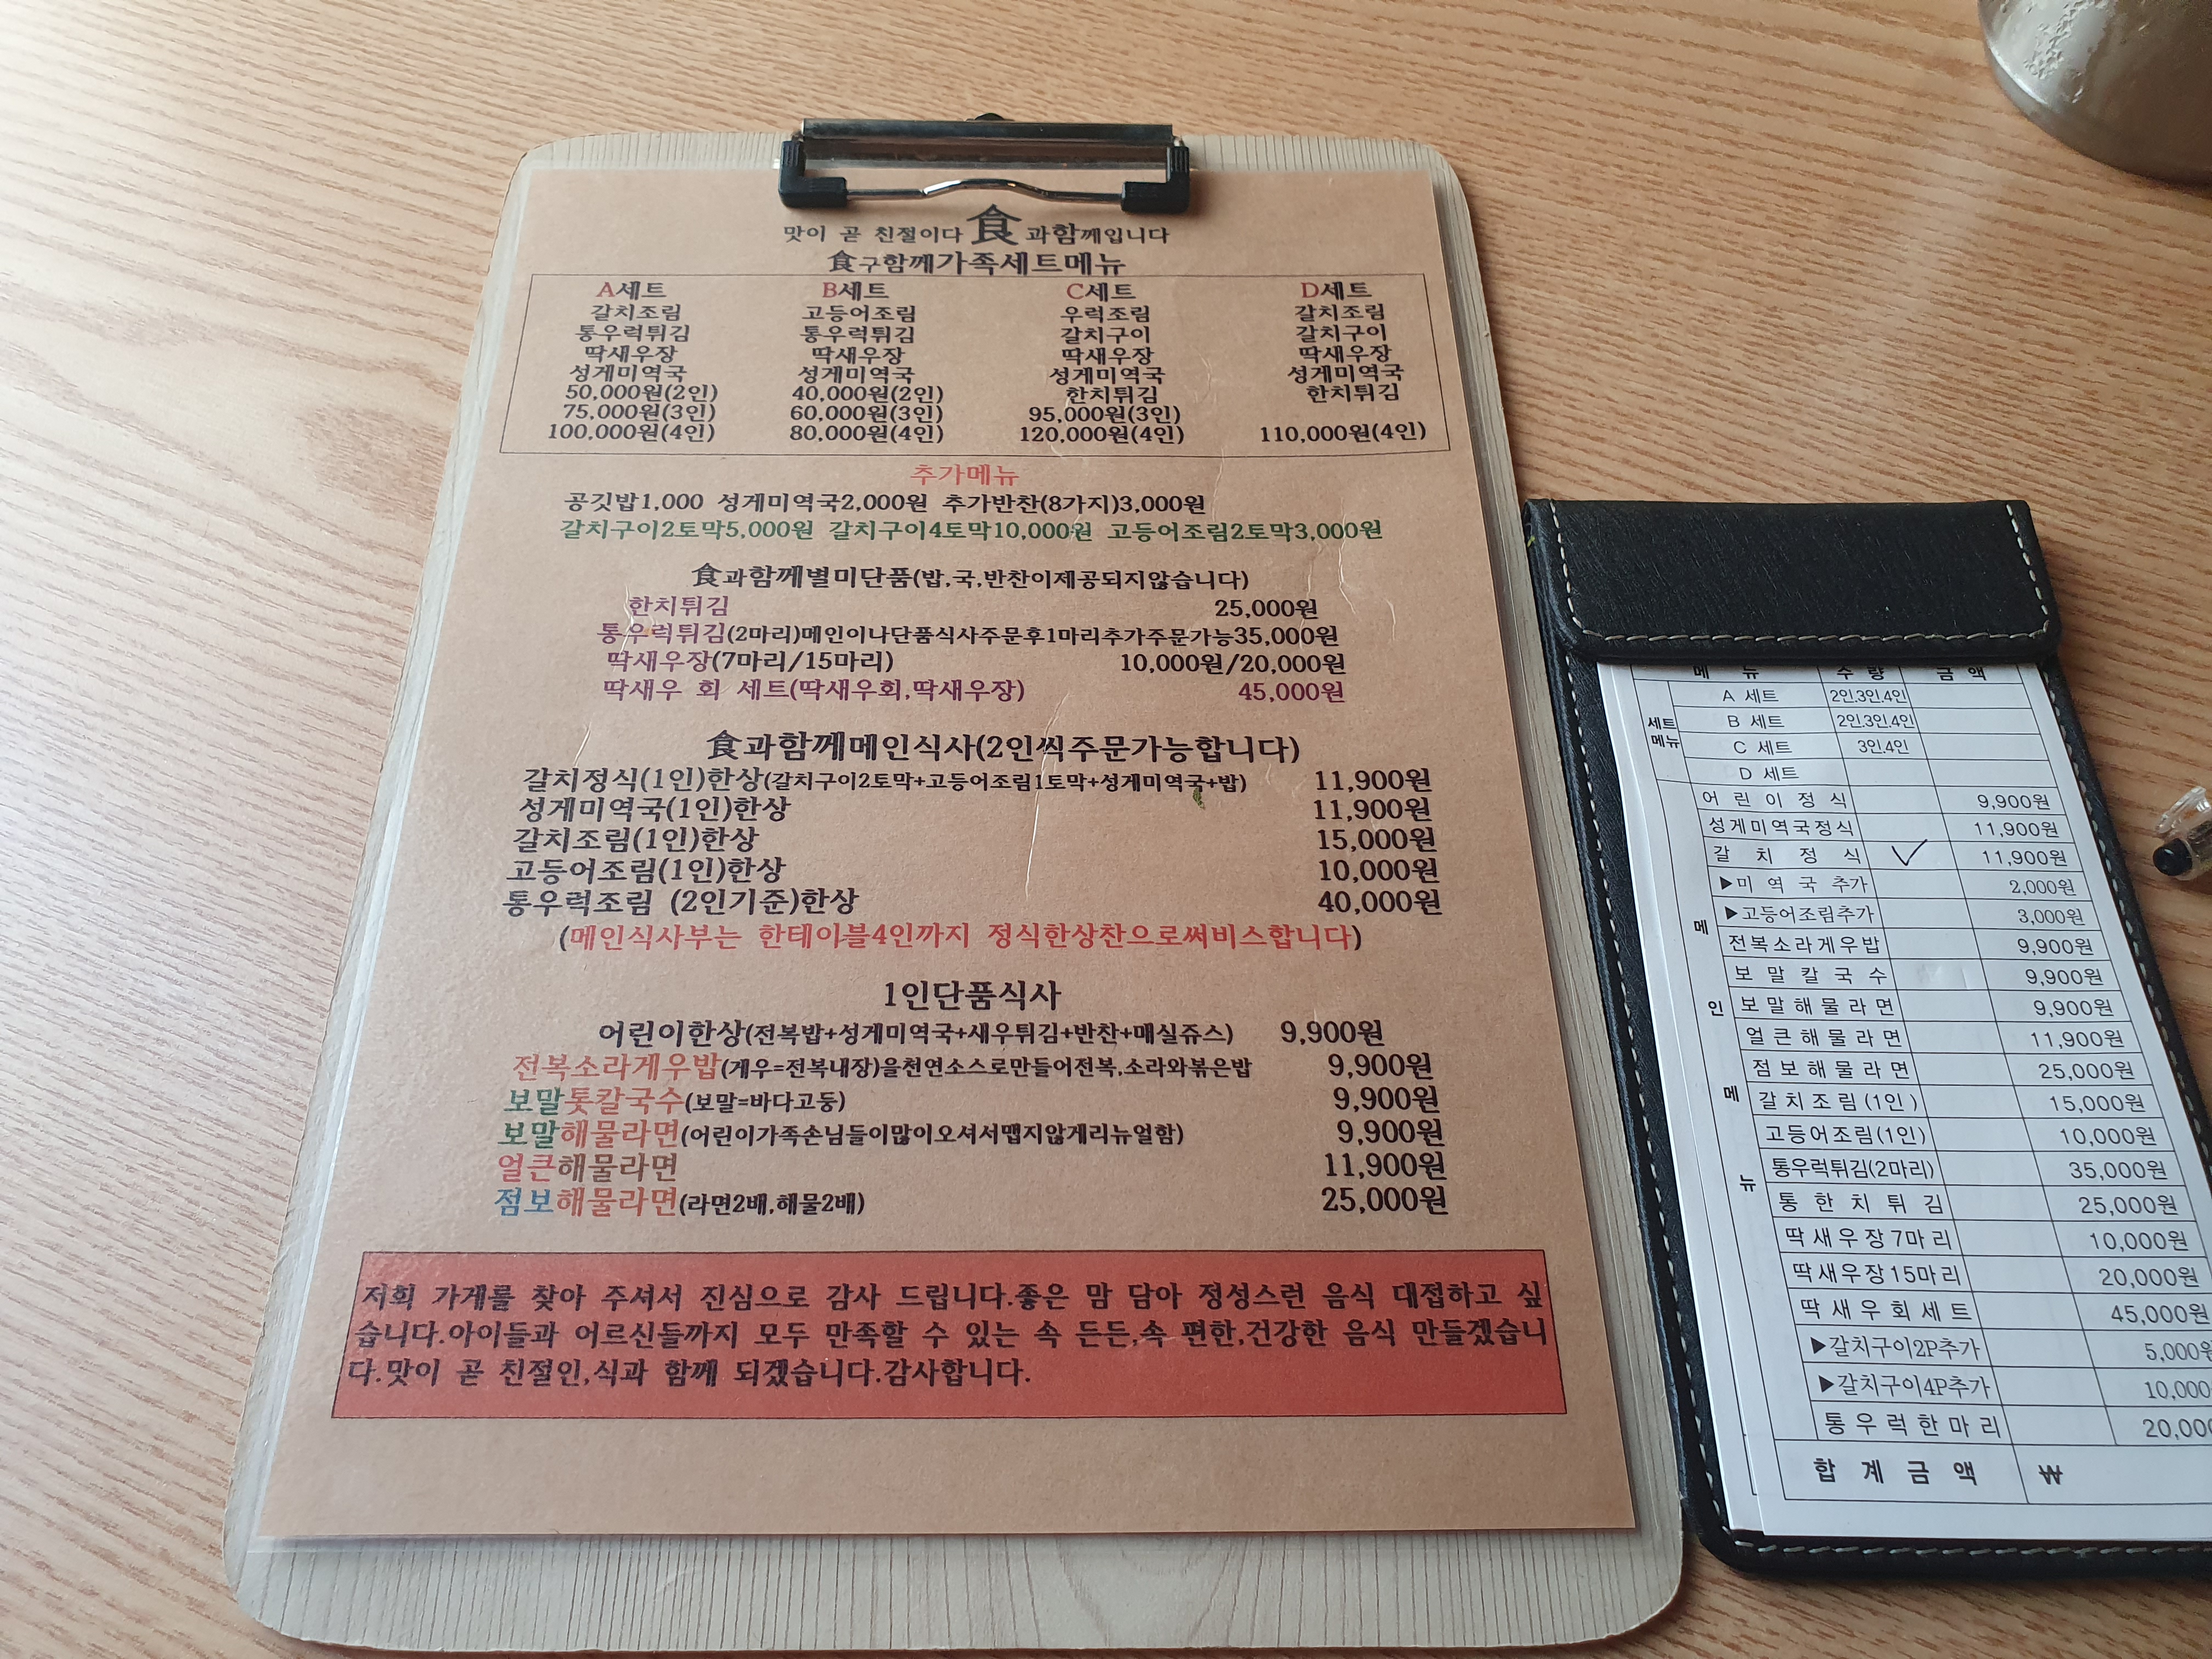 맛이 곧 친절이다 食과함께입니다
食구함께가족세트메뉴
A세트 B세트 C세트 D세트
갈치조림 고등어조림 우럭조림 갈치조림
통우럭튀김 통우럭튀김 갈치구이 갈치구이
딱새우장 딱새우장 딱새우장 딱새우장
성게미역국 성게미역국 성게미역국 성게미역국
50,000원(2인) 40,000원(2인) 한치튀김 한치튀김
75,000원(3인) 60,000원(3인) 95,000원(3인)
100,000원(4인) 80,000원(4인) 120,000원(4인) 110,000원(4인)
추가메뉴
공깃밥1,000 성게미역국2,000원 추가반찬(8가지)3,000원
갈치구이2토막5,000원 갈치구이4토막10,000원 고등어조림2토막3,000원
食과함께별미단품(밥,국,반찬이제공되지않습니다)
한치튀김 25,000원
통우럭튀김(2마리)메인이나단품식사주문후1마리추가주문가능35,000원
딱새우장(7마리/15마리) 10,000원/20,000원
딱새우 회 세트(딱새우회,딱새우장) 45,000원
食과함께메인식사(2인씩주문가능합니다)
갈치정식(1인)한상(갈치구이2토막+고등어조림1토막+성게미역국+밥) 11,900원
성게미역국(1인)한상 11,900원
갈치조림(1인)한상 15,000원
고등어조림(1인)한상 10,000원
통우럭조림 (2인기준)한상 40,000원
(메인식사부는 한테이블4인까지 정식한상찬으로써비스합니다)
1인단품식사
어린이한상(전복밥+성게미역국+새우튀김+반찬+매실쥬스) 9,900원
전복소라게우밥(게우=전복내장)을천연소스로만들어전복,소라와볶은밥 9,900원
보말톳칼국수(보말=바다고둥) 9,900원
보말해물라면(어린이가족손님들이많이오셔서맵지않게리뉴얼함) 9,900원
얼큰해물라면 11,900원
점보해물라면(라면2배,해물2배) 25,000원
저희 가게를 찾아 주셔서 진심으로 감사 드립니다.좋은 맘 담아 정성스런 음식 대접하고 싶
습니다.아이들과 어르신들까지 모두 만족할 수 있는 속 든든,속 편한,건강한 음식 만들겠습니
다.맛이 곧 친절인,식과 함께 되겠습니다.감사합니다.
메 뉴 수 량 금 액
세트
메뉴
A 세트 2인.3인.4인
B 세트 2인.3인.4인
C 세트 3인.4인
D 세트
메 인 메 뉴
어린이정식 9,900원
성게미역국정식 11,900원
갈치정식 ✓ 11,900원
▶미역국추가 2,000원
▶고등어조림추가 3,000원
전복소라게우밥 9,900원
보말칼국수 9,900원
보말해물라면 9,900원
얼큰해물라면 11,900원
점보해물라면 25,000원
갈치조림(1인) 15,000원
고등어조림(1인) 10,000원
통우럭튀김(2마리) 35,000원
통한치튀김 25,000원
딱새우장7마리 10,000원
딱새우장15마리 20,000원
딱새우회세트 45,000원
▶갈치구이2P추가 5,000원
▶갈치구이4P추가 10,000
통우럭한마리 20,00
합 계 금 액 ₩